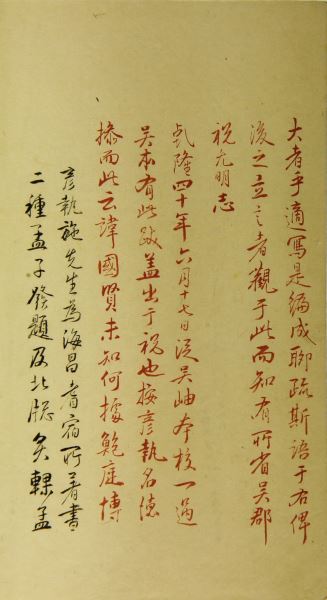 大者乎適寫是編成聊疏斯語于右俾
後之立言者觀于此而知有所省吳郡
祝允明志
乾隆四十年六月十七日從吳岫本校一過
吳本有此跋盖出于祝也按彥執名德
操而此云諱國賢未知何據鮑廷博
彥執施先生為海昌耆宿所著書
二種孟子發題及北窻炙輠孟